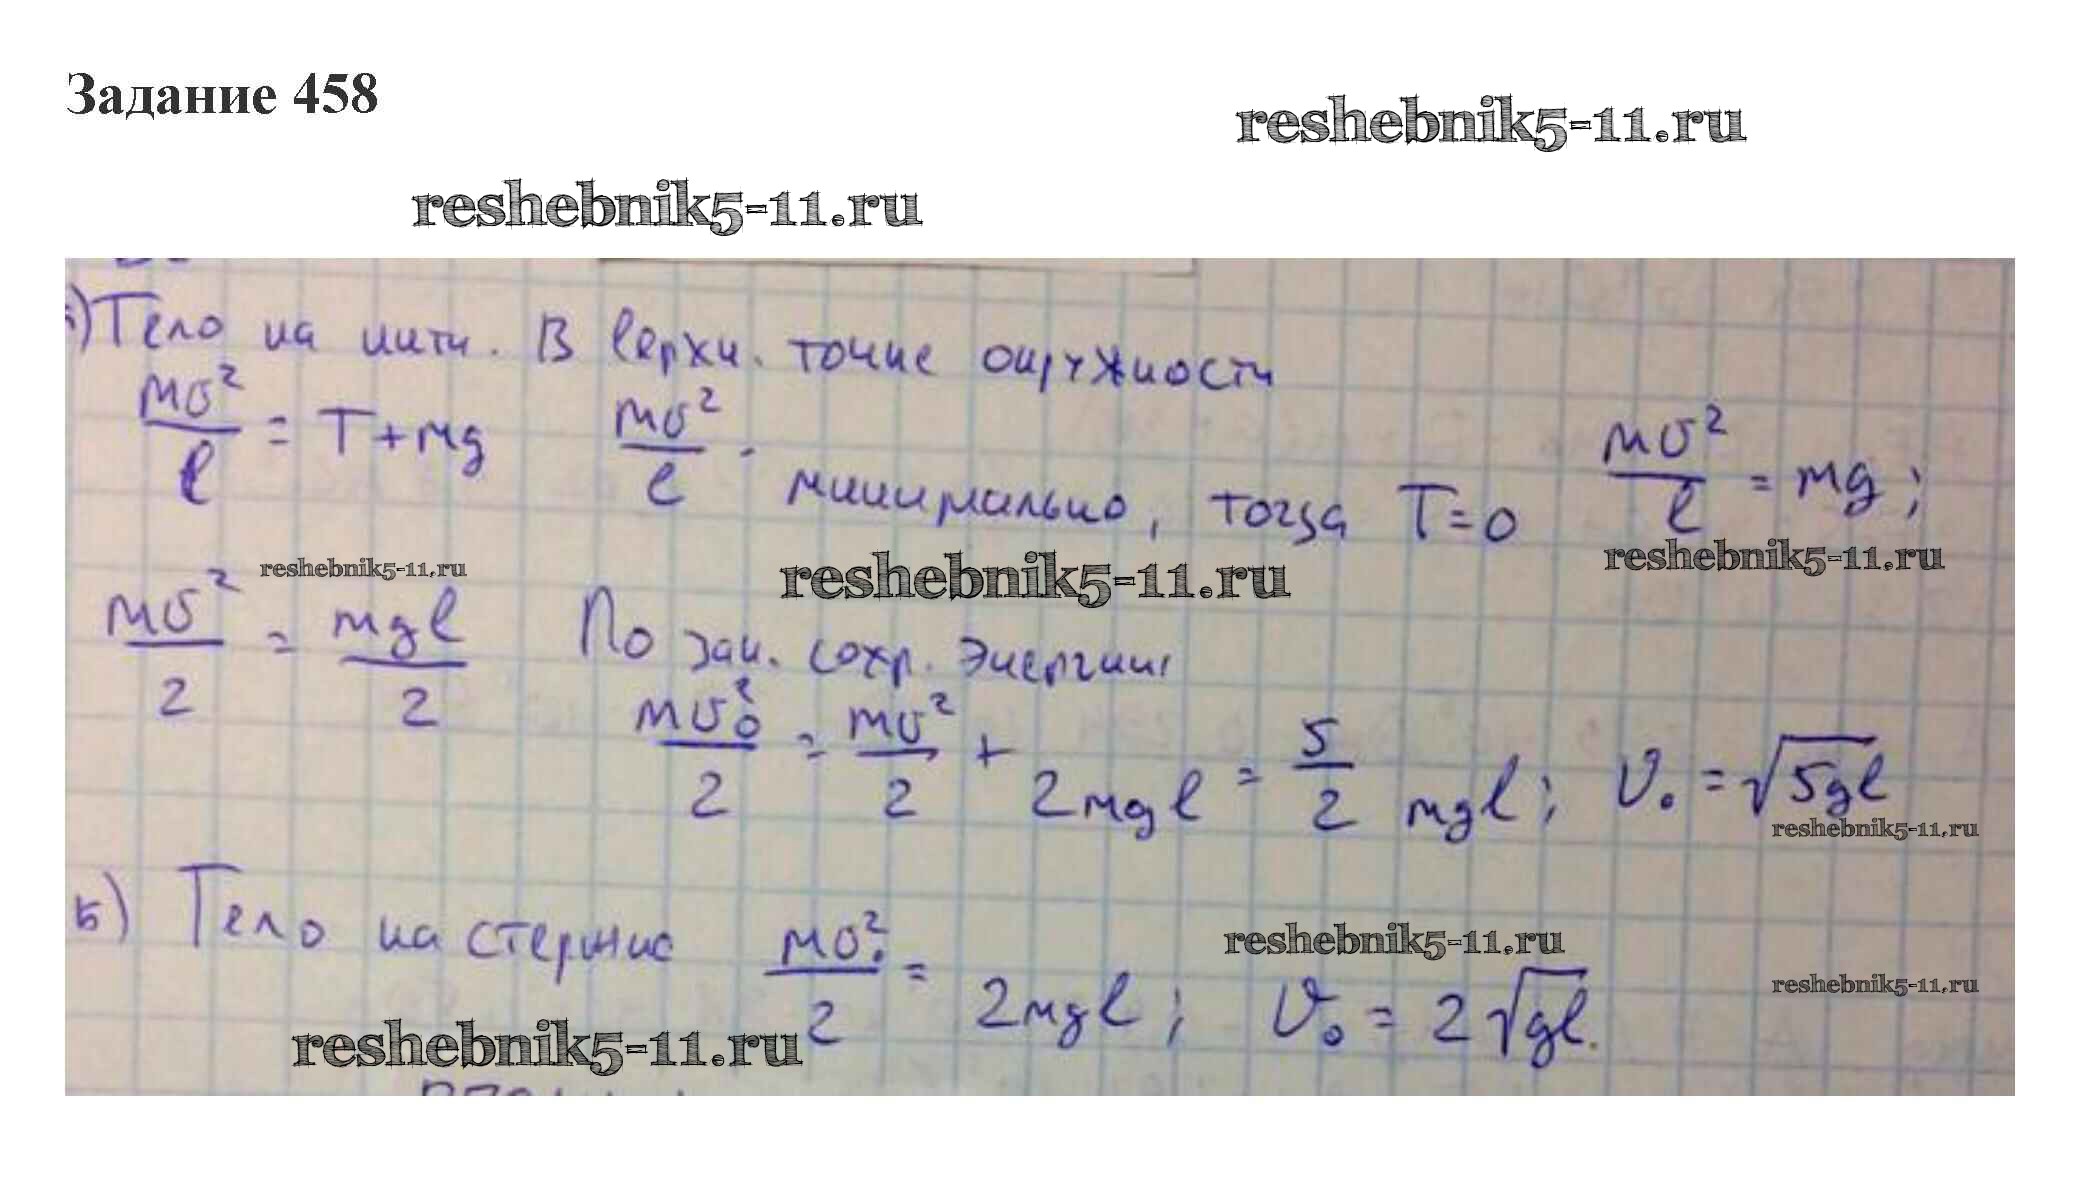 Задание 458
reshebnik5-11.ru
reshebnik5-11.ru
) Тело на нити. В верхн. точке окружности
mv²/l = T + mg   mv²/l - минимально, тогда T = 0   mv²/l = mg;
reshebnik5-11.ru reshebnik5-11.ru reshebnik5-11.ru
mv²/2 = mgl/2   По зак. сохр. энергии
mv₀²/2 = mv²/2 + 2mgl = 5/2 mgl; v₀ = √5gl
reshebnik5-11.ru
б) Тело на стержне   mv₀²/2 = 2mgl; v₀ = 2√gl.
reshebnik5-11.ru
reshebnik5-11.ru
reshebnik5-11.ru